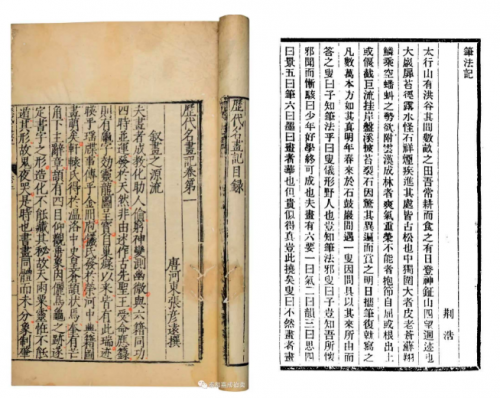 歷代名畫記目錄
歷代名畫記卷第一
唐河東張彥遠撰
敘畫之源流
夫畫者成教化助人倫窮神變測幽微與六籍同功
四時並運發於天然非由述作古先聖王受命應籙
則有龜字效靈龍圖呈寶自巢燧以來皆有此瑞迹
暎乎瑤牒事傳乎金冊庖犧氏發於滎河中典籍圖
畫萌矣軒轅氏得於溫洛中史皇蒼頡狀焉奎有芒
角下主辭章頡有四目仰觀垂象因儷鳥龜之跡遂
定書字之形造化不能藏其秘故天雨粟靈怪不能
遁其形故鬼夜哭是時也書畫同體而未分象制肇
筆法記
荊浩
太行山有洪谷其間數畝之田吾常耕而食之有日登神鉦山四望迴迹入
大巖扉苔徑露水怪石祥煙疾進其處皆古松也中獨圍大者皮老蒼蘚翔
鱗乘空蟠虬之勢欲附雲漢成林者爽氣重榮不能者抱節自屈或根出土
或偃截巨流挂岸盤溪披苔裂石因驚其異遍而賞之明日攜筆復就寫之
凡數萬本方如其真明年春來於石鼓巖間遇一叟因問具以其來所由而
答之叟曰子知筆法乎曰叟儀形野人也豈知筆法邪叟曰子豈知吾所懷
邪聞而慚駭叟曰少年好學終可成也夫畫有六要一曰氣二曰韻三曰思四
曰景五曰筆六曰墨曰畫者華也但貴似得真豈此撓矣叟曰不然畫者畫